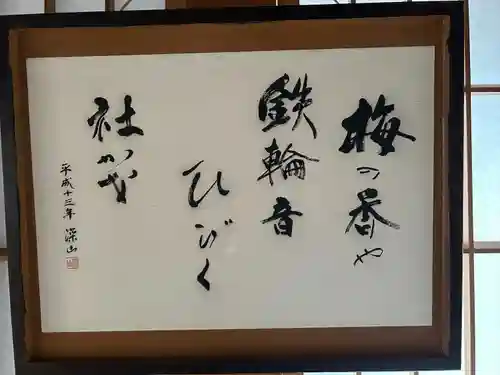 梅の香や
鉄輪音
ひびく
社かな
平成十三年 深山